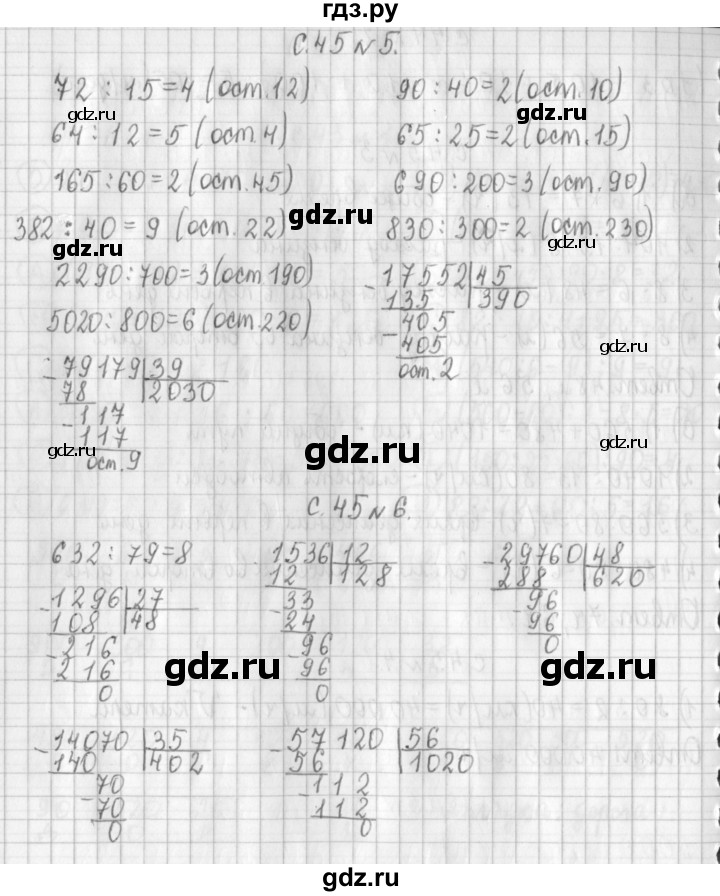 гдз.ру
С.45 №5.
72 : 15=4 (ост.12) 90:40=2(ост.10)
gdz.ru gdz.ru
64:12=5 (ост.4) 65:25=2(ост.15)
165:60=2 (ост.45) 690:200=3(ост.90)
gdz.ru
382:40=9 (ост.22) 830:300=2 (ост.230)
gdz.ru gdz.ru
2290:700=3(ост190) - 17552 45
135 390
5020:800=6(ост.220) - 405
405 gdz.ru
ост.2
- 79179 39
78 2030
- 117
117
gdz.ru gdz.ru gdz.ru
ост.9
С.45 №6.
632:79=8 1536 12 - 29760 48
12 128 288 620
- 1296 27 - 33 96
108 48 24 96
- 216 - 96 0
216 96
gdz.ru gdz.ru
0 0
- 14070 35 - 57120 56
140 402 56 1020
- 70 - 112
70 112
0 0
gdz.ru gdz.ru gdz.ru